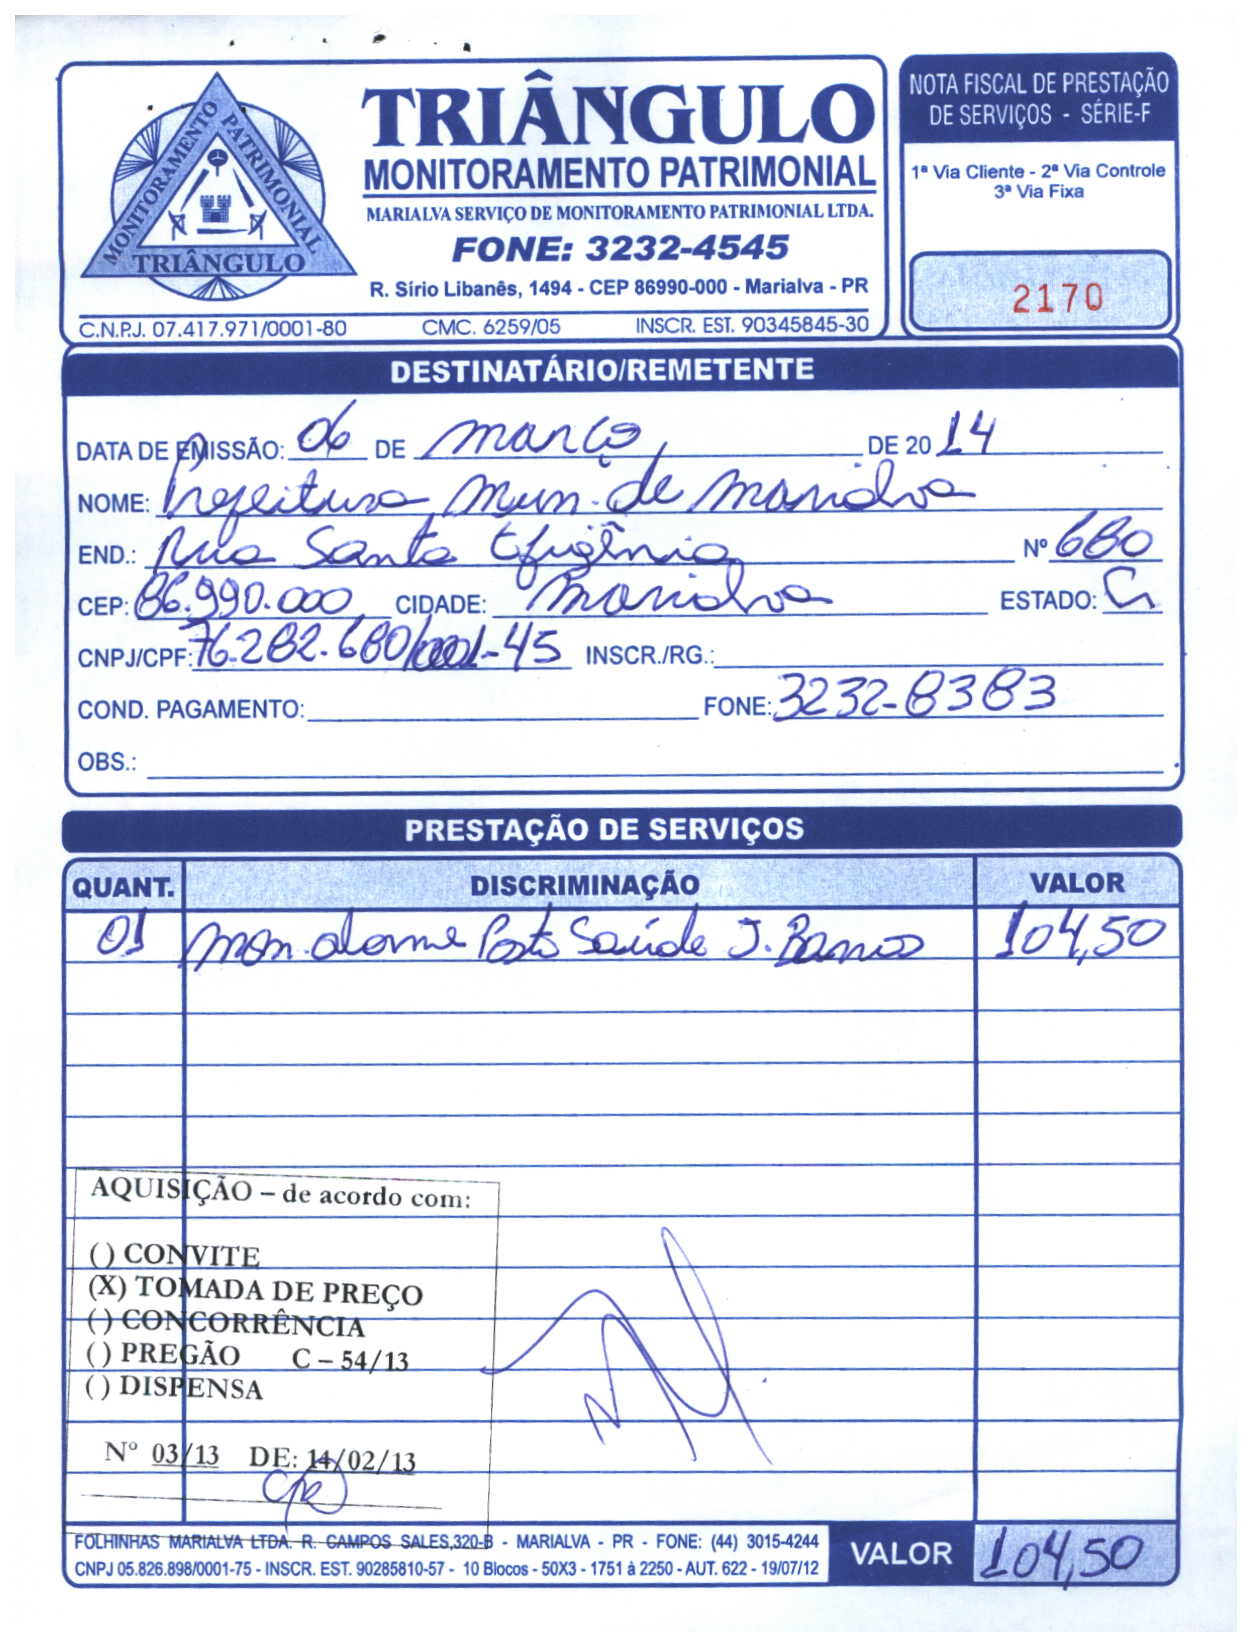 TRIÂNGULO
MONITORAMENTO PATRIMONIAL
MARIALVA SERVIÇO DE MONITORAMENTO PATRIMONIAL LTDA.
FONE: 3232-4545
R. Sírio Libanês, 1494 - CEP 86990-000 - Marialva - PR
C.N.P.J. 07.417.971/0001-80 CMC. 6259/05 INSCR. EST. 90345845-30
MONITORAMENTO PATRIMONIAL
TRIÂNGULO
NOTA FISCAL DE PRESTAÇÃO
DE SERVIÇOS - SÉRIE-F
1ª Via Cliente - 2ª Via Controle
3ª Via Fixa
2170
DESTINATÁRIO/REMETENTE
DATA DE EMISSÃO: 06 DE março DE 20 14
NOME: Prefeitura Mun. de Marialva
END.: Rua Santa Efigênia Nº 680
CEP: 86.990.000 CIDADE: Marialva ESTADO:
CNPJ/CPF: 76.282.680/0001-45 INSCR./RG.:
COND. PAGAMENTO: FONE: 3232-8383
OBS.:
PRESTAÇÃO DE SERVIÇOS
QUANT. DISCRIMINAÇÃO VALOR
01 Mon. alarme Posto Saúde J. 104,50
AQUISIÇÃO – de acordo com:
( ) CONVITE
(X) TOMADA DE PREÇO
( ) CONCORRÊNCIA
( ) PREGÃO C – 54/13
( ) DISPENSA
Nº 03/13 DE: 14/02/13
FOLHINHAS MARIALVA LTDA. R. CAMPOS SALES,320-B - MARIALVA - PR - FONE: (44) 3015-4244
CNPJ 05.826.898/0001-75 - INSCR. EST. 90285810-57 - 10 Blocos - 50X3 - 1751 à 2250 - AUT. 622 - 19/07/12
VALOR 104,50